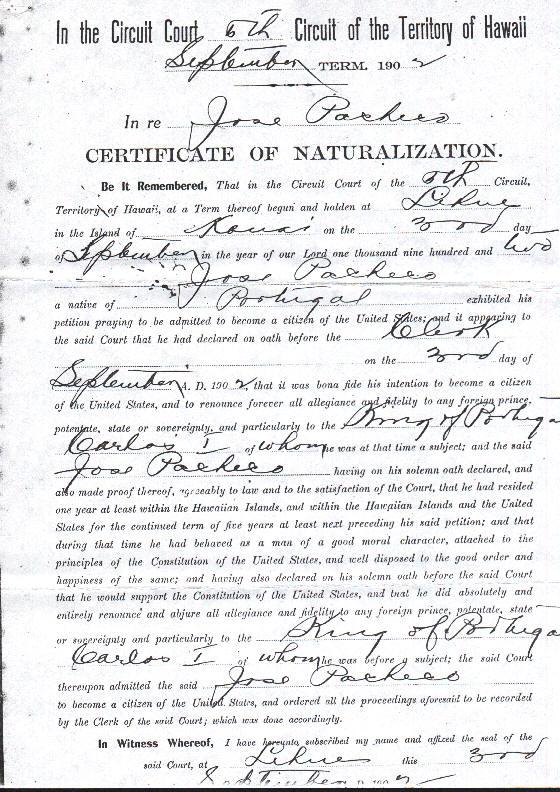 In the Circuit Court 5th Circuit of the Territory of Hawaii
September TERM. 1902
In re Jose Pacheco
CERTIFICATE OF NATURALIZATION.
Be It Remembered, That in the Circuit Court of the 5th Circuit,
Territory of Hawaii, at a Term thereof begun and holden at Lihue
in the Island of Kauai on the 3rd day
of September in the year of our Lord one thousand nine hundred and two
Jose Pacheco
a native of Portugal exhibited his
petition praying to be admitted to become a citizen of the United States; and it appearing to
the said Court that he had declared on oath before the Clerk
on the 3rd day of
September A. D. 1902, that it was bona fide his intention to become a citizen
of the United States, and to renounce forever all allegiance and fidelity to any foreign prince,
potentate, state or sovereignty, and particularly to the King of Portugal
Carlos I of whom he was at that time a subject; and the said
Jose Pacheco having on his solemn oath declared, and
also made proof thereof, agreeably to law and to the satisfaction of the Court, that he had resided
one year at least within the Hawaiian Islands, and within the Hawaiian Islands and the United
States for the continued term of five years at least next preceding his said petition; and that
during that time he had behaved as a man of a good moral character, attached to the
principles of the Constitution of the United States, and well disposed to the good order and
happiness of the same; and having also declared on his solemn oath before the said Court
that he would support the Constitution of the United States, and that he did absolutely and
entirely renounce and abjure all allegiance and fidelity to any foreign prince, potentate, state
or sovereignty and particularly to the King of Portugal
Carlos I of whom he was before a subject; the said Court
thereupon admitted the said Jose Pacheco
to become a citizen of the United States, and ordered all the proceedings aforesaid to be recorded
by the Clerk of the said Court; which was done accordingly.
In Witness Whereof, I have hereunto subscribed my name and affixed the seal of the
said Court, at Lihue this 3rd
September D. 1902